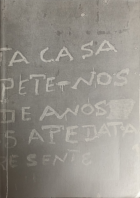 TA CASA
PETE-NOS
DE ANOS
S APEDATA
DE SENTE